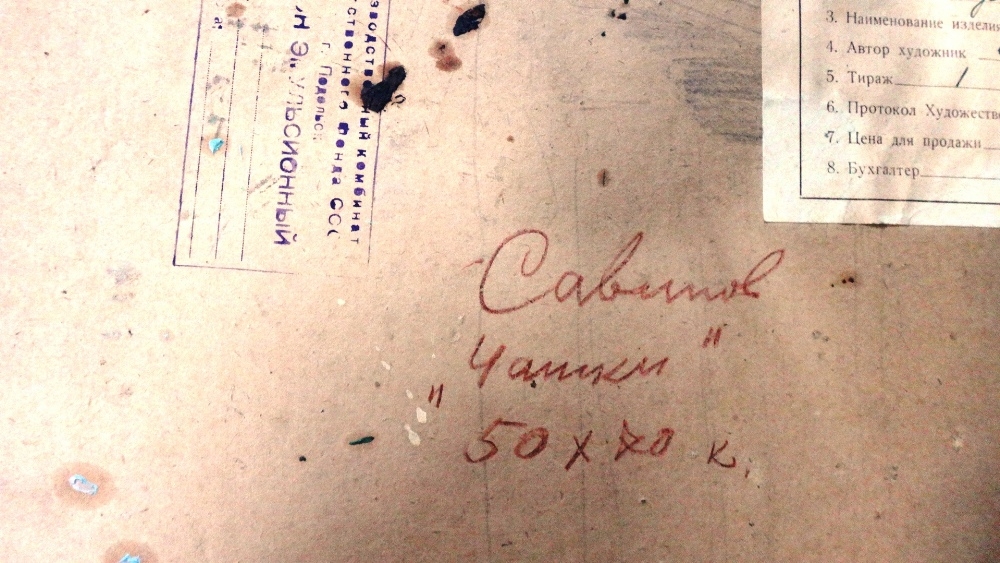 зводственный комбинат
ственного Фонда ССС
г. Подольск
ЭМУЛЬСИОННЫЙ
3. Наименование изделия
4. Автор художник
5. Тираж 1
6. Протокол Художестве
7. Цена для продажи
8. Бухгалтер
Савинов
"Чашки"
50 х 70 к.